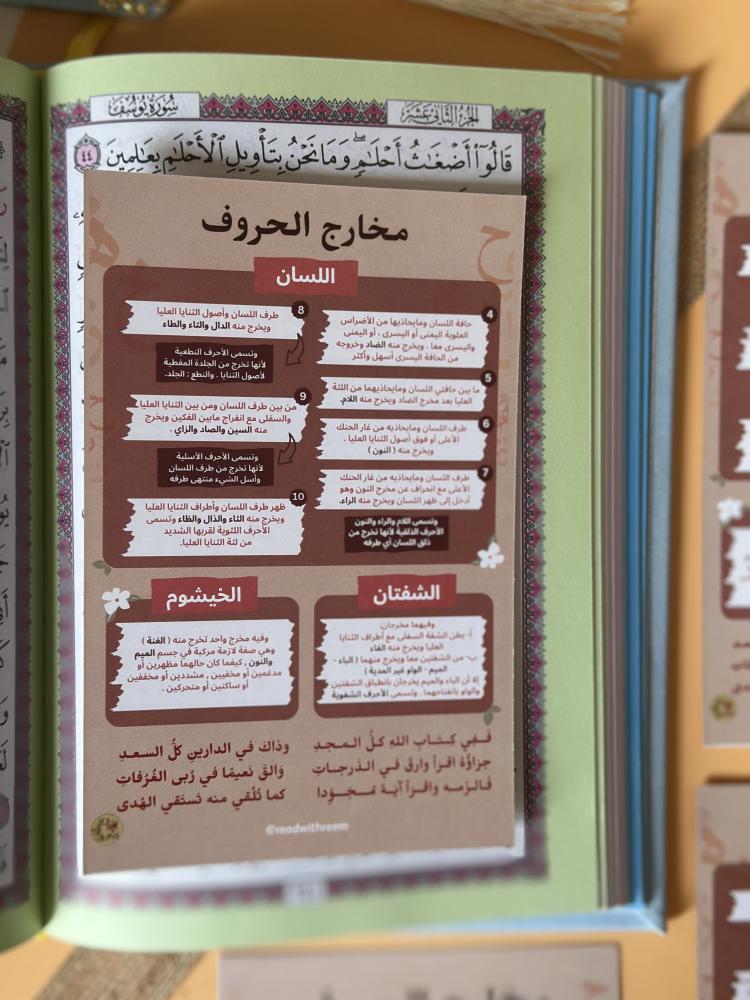 سُورَةُ يُوسُفَ
الجُزْءُ الثَّانِي عَشَرَ
قَالُوٓا۟ أَضْغَـٰثُ أَحْلَـٰمٍۢ ۖ وَمَا نَحْنُ بِتَأْوِيلِ ٱلْأَحْلَـٰمِ بِعَـٰلِمِينَ ٤٤
مخارج الحروف
اللسان
4
حافة اللسان ومايحاذيها من الأضراس
العلوية اليمنى أو اليسرى ، أو اليمنى
واليسرى معا ، ويخرج منه الضاد وخروجه
من الحافة اليسرى أسهل وأكثر
5
ما بين حافتي اللسان ومايحاذيهما من اللثة
العليا بعد مخرج الضاد ويخرج منه اللام.
6
طرف اللسان ومايحاذيه من غار الحنك
الأعلى أو فوق أصول الثنايا العليا .
ويخرج منه ( النون )
7
طرف اللسان ومايحاذيه من غار الحنك
الأعلى مع انحراف عن مخرج النون وهو
أدخل إلى ظهر اللسان ويخرج منه الراء.
وتسمى اللام والراء والنون
الأحرف الذلقية لأنها تخرج من
ذلق اللسان أي طرفه
8
طرف اللسان وأصول الثنايا العليا
ويخرج منه الدال والتاء والطاء
وتسمى الأحرف النطعية
لأنها تخرج من الجلدة المغطية
لأصول الثنايا . والنطع : الجلد.
9
من بين طرف اللسان ومن بين الثنايا العليا
والسفلى مع انفراج مابين الفكين ويخرج
منه السين والصاد والزاي .
وتسمى الأحرف الأسلية
لأنها تخرج من طرف اللسان
وأسل الشيء منتهى طرفه
10
ظهر طرف اللسان وأطراف الثنايا العليا
ويخرج منه الثاء والذال والظاء وتسمى
الأحرف اللثوية لقربها الشديد
من لثة الثنايا العليا.
الشفتان
وفيهما مخرجان:
أ- بطن الشفة السفلى مع أطراف الثنايا
العليا ويخرج منه الفاء
ب- من الشفتين معا ويخرج منهما ( الباء -
الميم - الواو غير المدية )
إلا أن الباء والميم يخرجان بانطباق الشفتين
والواو بانفتاحهما . وتسمى الأحرف الشفوية
الخيشوم
وفيه مخرج واحد تخرج منه ( الغنة )
وهي صفة لازمة مركبة في جسم الميم
والنون , كيفما كان حالهما مظهرين أو
مدغمين أو مخفيين , مشددين أو مخففين
أو ساكنين أو متحركين .
فَفِي كِتَابِ اللهِ كلُّ المجدِ وذاكَ في الدارينِ كلُّ السعدِ
جزاؤُهُ اقرأ وارقَ في الدَرجاتِ وَالقَ نَعيمًا في رُبى الغُرُفاتِ
فالزمه واقرأ آيَهُ مُجَوِّدا كما تُلُقي منه تَستَقي الهُدى
@readwithreem